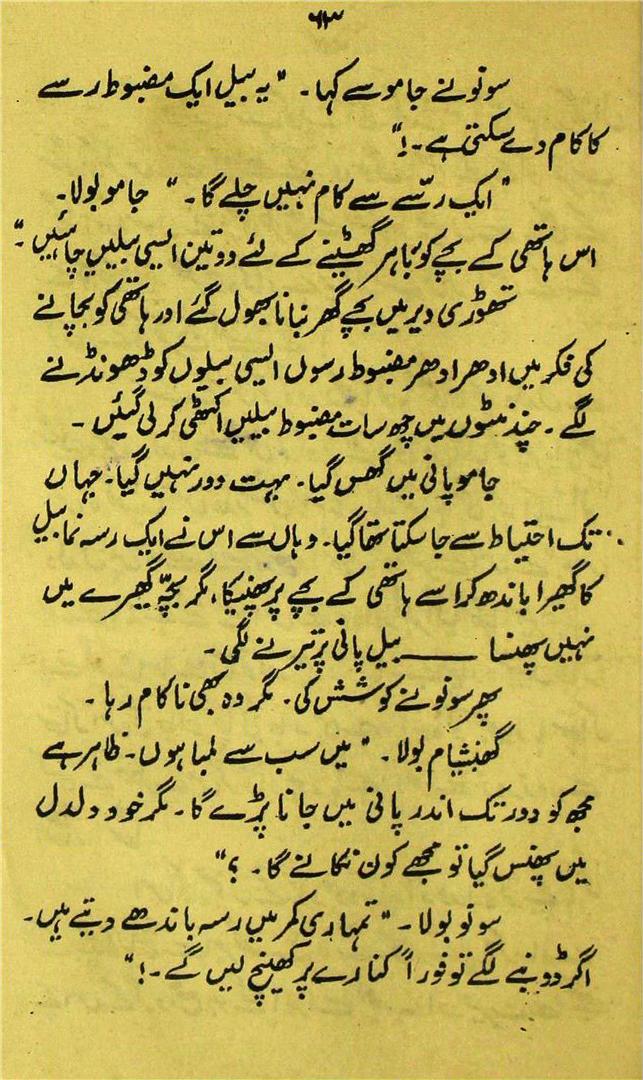 ۶۳
سونو نے جامو سے کہا۔ "یہ بیل ایک مضبوط رسے
کا کام دے سکتی ہے۔!"
"ایک رسّے سے کام نہیں چلے گا۔" جامو بولا۔
اس ہاتھی کے بچے کو باہر گھسیٹنے کے لئے دو تین ایسی بیلیں چاہئیں۔"
تھوڑی دیر میں بچے گھر بنانا بھول گئے اور ہاتھی کو بچانے
کی فکر میں ادھر ادھر مضبوط رسوں ایسی بیلوں کو ڈھونڈنے
لگے۔ چند منٹوں میں چھ سات مضبوط بیلیں اکٹھی کر لی گئیں۔
جامو پانی میں گھس گیا۔ بہت دور نہیں گیا۔ جہاں
تک احتیاط سے جا سکتا تھا گیا۔ وہاں سے اس نے ایک رسہ نما بیل
کا گھیرا باندھ کر اسے ہاتھی کے بچے پر پھینکا، مگر بچّہ گھیرے میں
نہیں پھنسا ــــــ بیل پانی پر تیرنے لگی۔
پھر سونو نے کوشش کی۔ مگر وہ بھی ناکام رہا۔
گھنشیام بولا۔ "میں سب سے لمبا ہوں۔ ظاہر ہے
مجھ کو دور تک اندر پانی میں جانا پڑے گا۔ مگر خود دلدل
میں پھنس گیا تو مجھے کون نکالنے گا۔ ؟"
سونو بولا۔ "تمہاری کمر میں رسہ باندھے دیتے ہیں۔
اگر ڈوبنے لگے تو فوراً کنارے پر کھینچ لیں گے۔!"